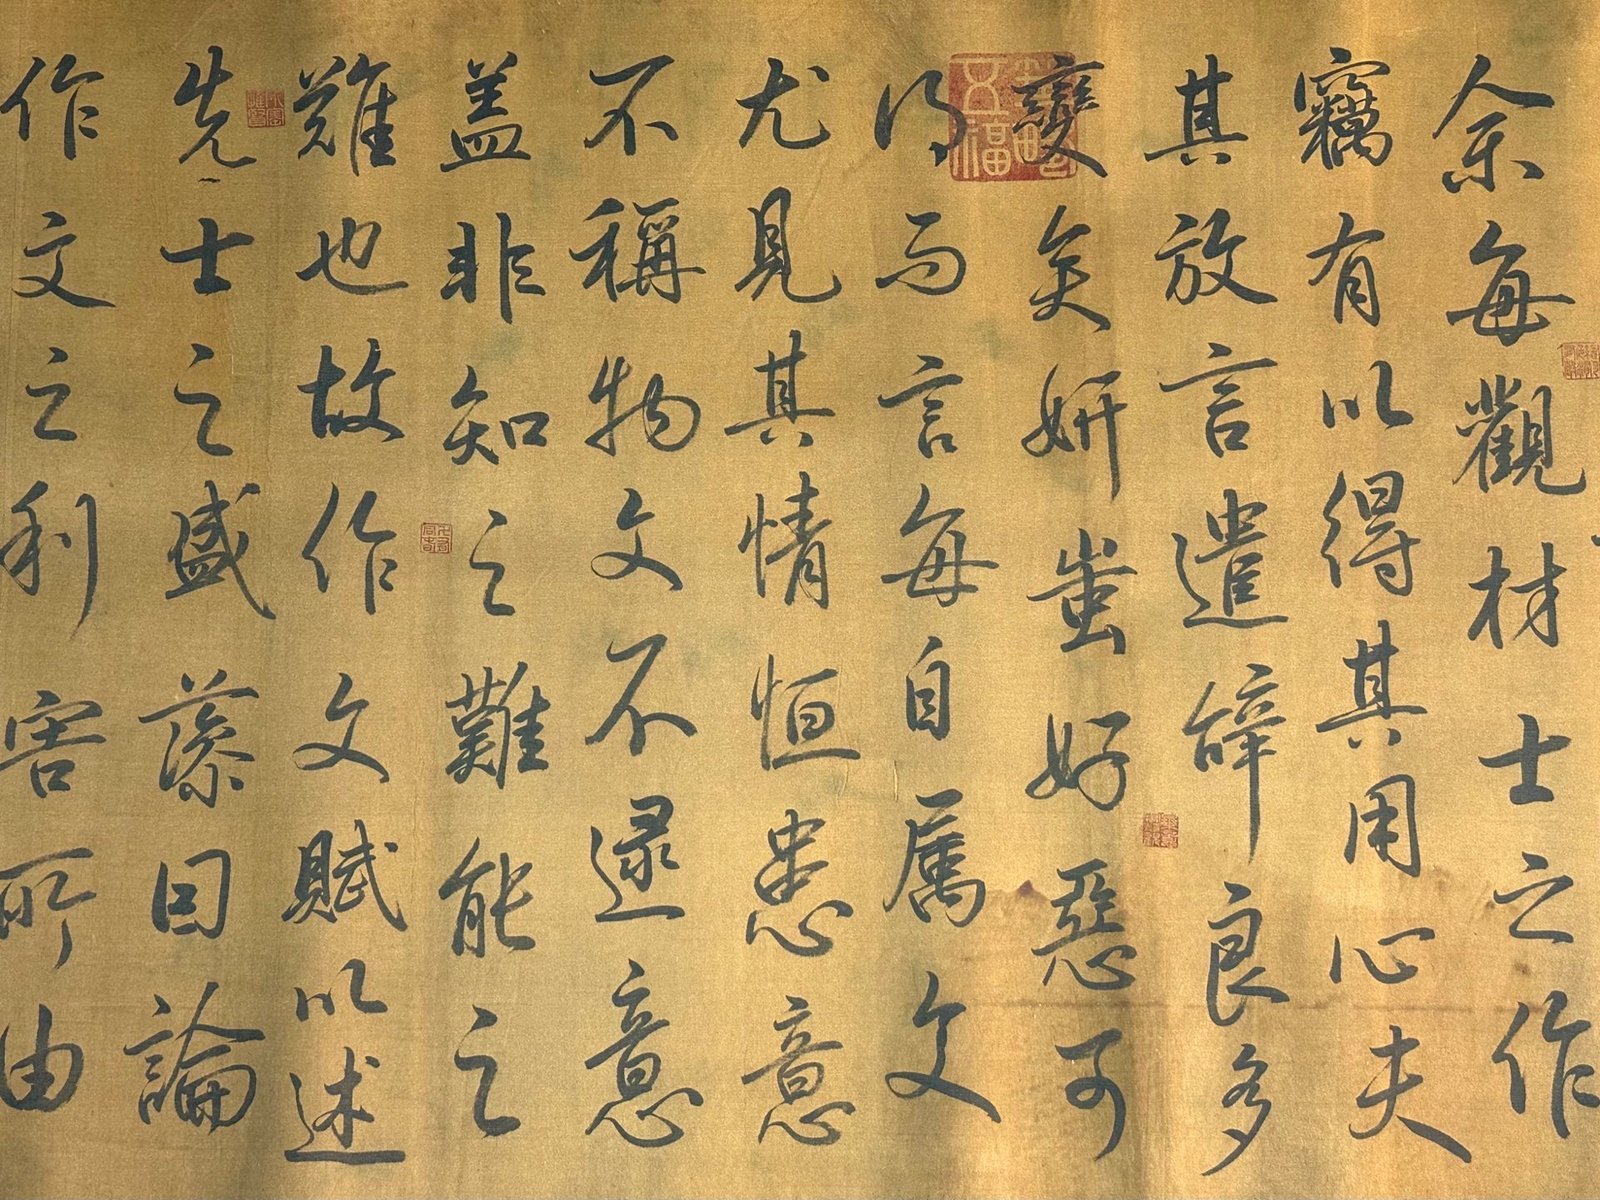 余每觀材士之作
竊有以得其用心夫
其放言遣辭良多
變矣妍蚩好惡可
得而言每自屬文
尤見其情恒患意
不稱物文不逮意
盖非知之難能之
難也故作文賦以述
先士之盛藻因論
作文之利害所由